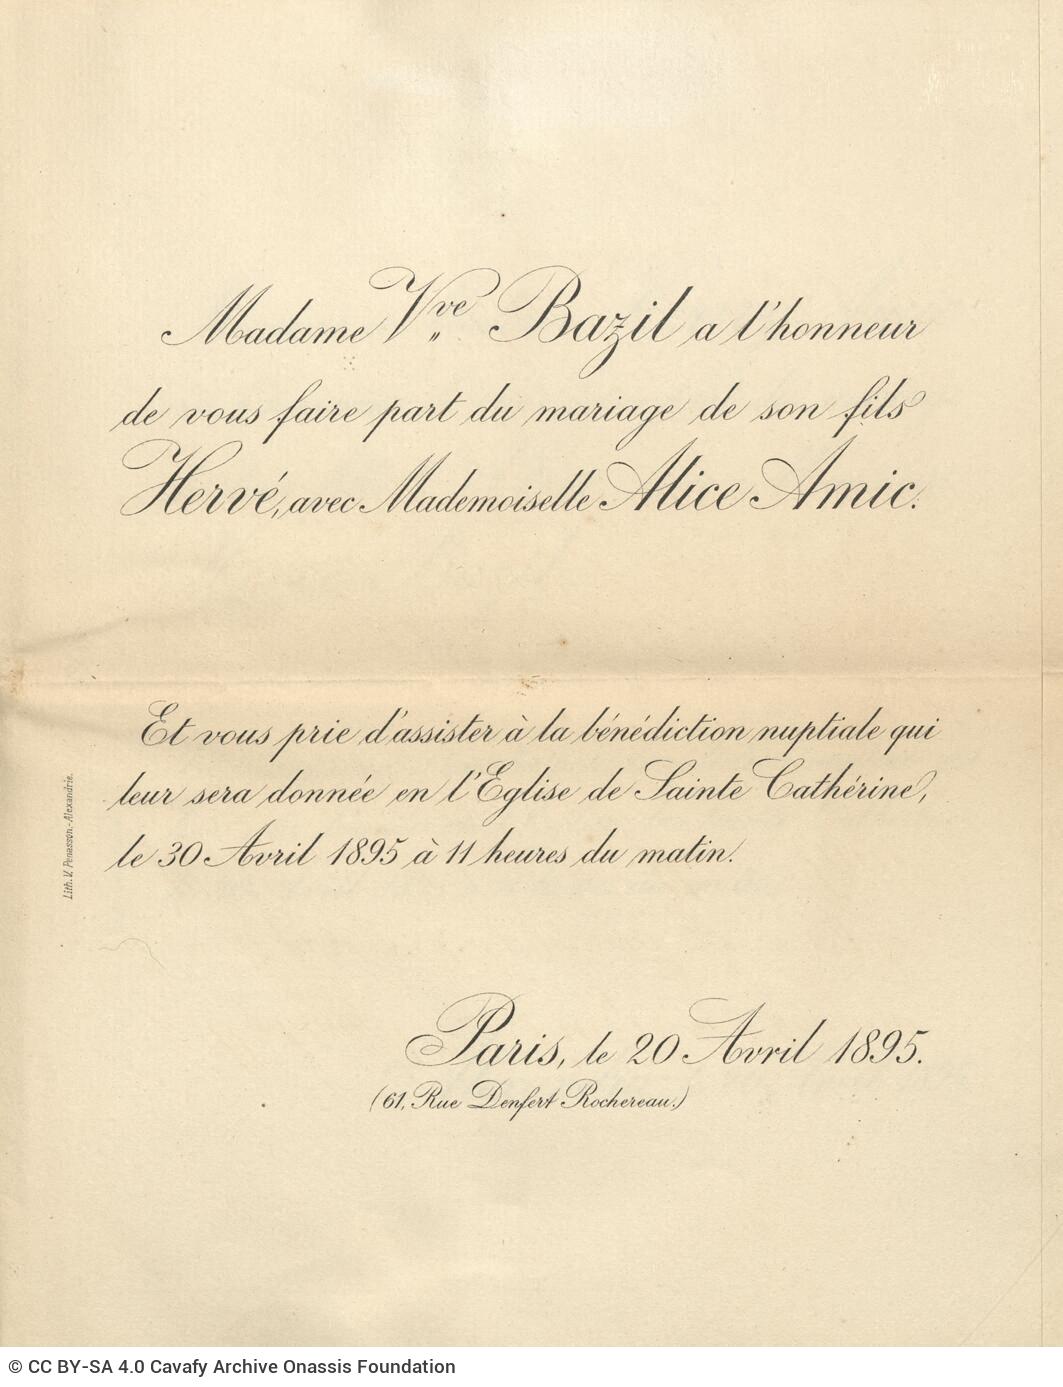 Madame Vve Bazil a l'honneur
de vous faire part du mariage de son fils
Hervé, avec Mademoiselle Alice Amic.
Et vous prie d'assister à la bénédiction nuptiale qui
leur sera donnée en l'Eglise de Sainte Cathérine,
le 30 Avril 1895 à 11 heures du matin.
Lith. V. Penasson.-Alexandrie.
Paris, le 20 Avril 1895.
(61, Rue Denfert Rochereau.)
© CC BY-SA 4.0 Cavafy Archive Onassis Foundation